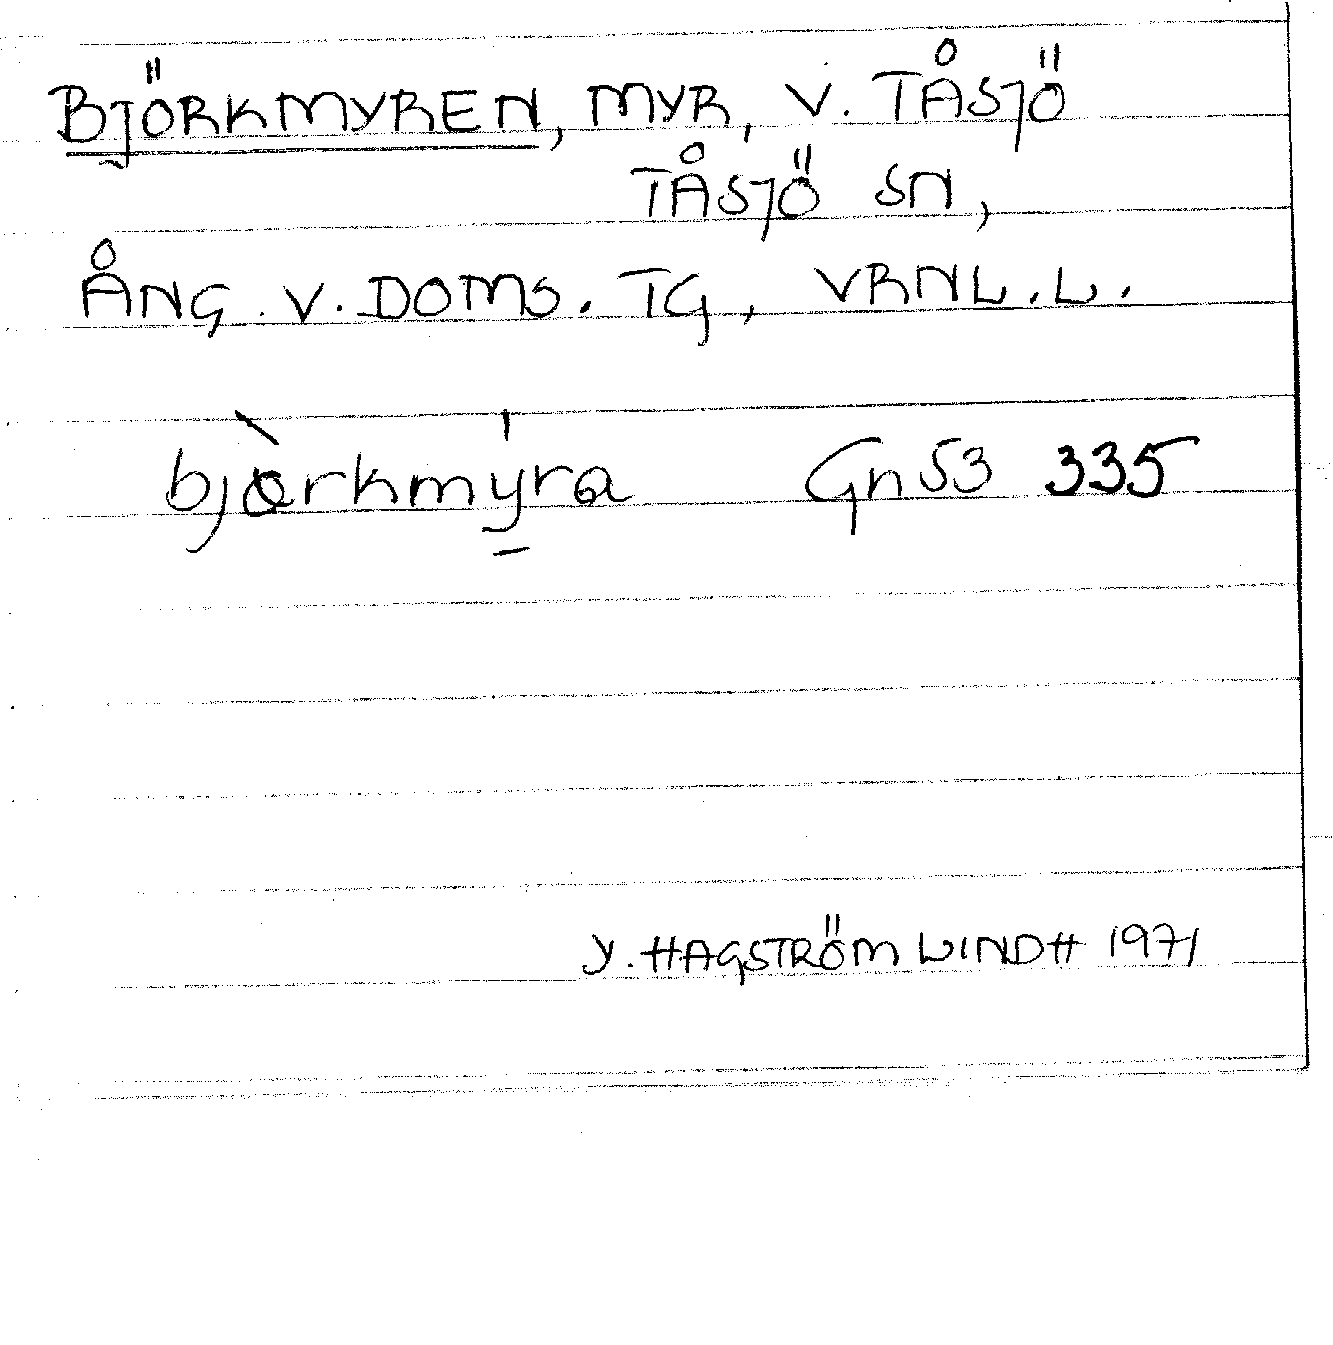 BJÖRKMYREN, MYR, V. TÅSJÖ
TÅSJÖ SN,
ÅNG. V. DOMS. TG, VRNL. L.
bjòrkmýra Gn S3 335
Y. HAGSTRÖM LINDH 1971